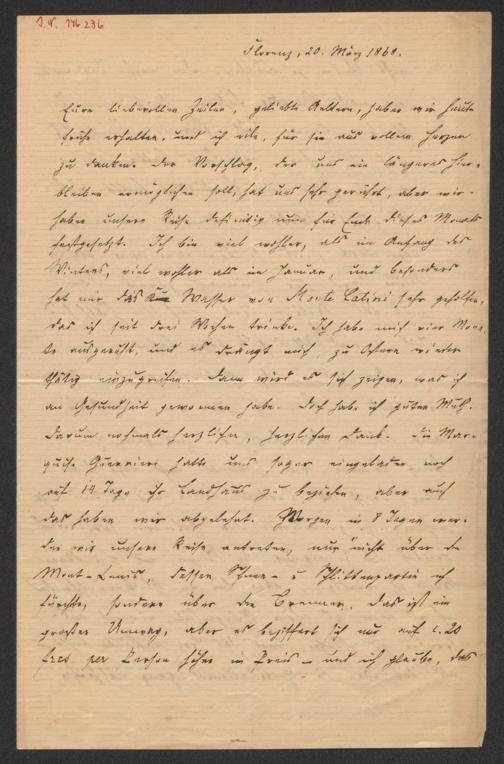 I.N. 146.236
Florenz, 20. März 1868.
Eure liebevollen Zeilen, geliebte Aeltern, haben wir heute
früh erhalten, und ich eile, für sie aus vollem Herzen
zu danken. Der Vorschlag, der uns ein längeres Hier-
bleiben ermöglichen soll, hat uns sehr gerührt, aber wir
haben unsere Reise definitiv nun für Ende dieses Monats
festgesetzt. Ich bin viel wohler, als im Anfang des
Winters, viel wohler als im Januar, und besonders
hat mir das Wasser von Monte Catini sehr geholfen,
das ich seit drei Wochen trinke. Ich habe mich vier Mona-
te ausgeruht, und es drängt mich, zu Ostern wieder
thätig einzugreifen. Dann wird es sich zeigen, was ich
an Gesundheit gewonnen habe. Doch habe ich guten Muth.
Darum nochmals herzlichen, herzlichen Dank. Die Mar-
quise Guerrieri hatte uns sogar eingeladen noch
auf 14 Tage ihr Landhaus zu beziehen, aber auch
das haben wir abgelehnt. Morgen in 8 Tagen wer-
den wir unsere Reise antreten, nur nicht über den
Mont-Cenis, dessen Schnee- u Schlittenpartie ich
fürchte, sondern über den Brenner, das ist ein
großer Umweg, aber es beziffert sich nur auf c. 20
frcs per Person höher im Preis – und ich glaube, das